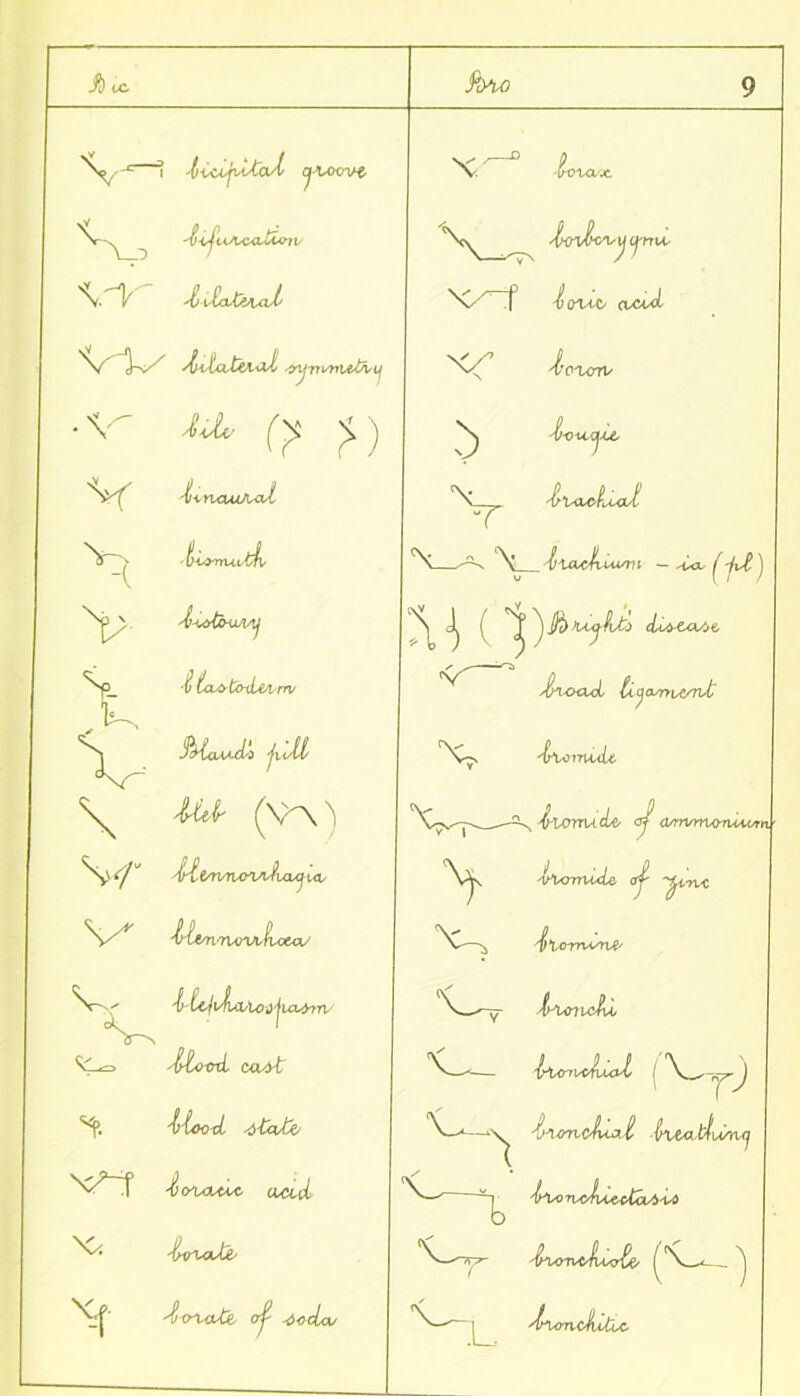 Bic
Bro 9
bicipital groove
bifurcation
bilateral
bilateral symmetry
bile
binaural
bismuth
bistoury
blastoderm
Blaud's pill
bleb
blennorrhagia
blennorrhoea
blepharospasm
blood cast
blood state
boracic acid
borate
borate of soda
borax
borborygmi
boric acid
boron
bougie
brachial
brachium - ia (pl)
Bright's disease
broad ligament
bromide
bromide of ammonium
bromide of zinc
bromine
bronchi
bronchial
bronchial breathing
bronchiectasis
bronchiole
bronchitic